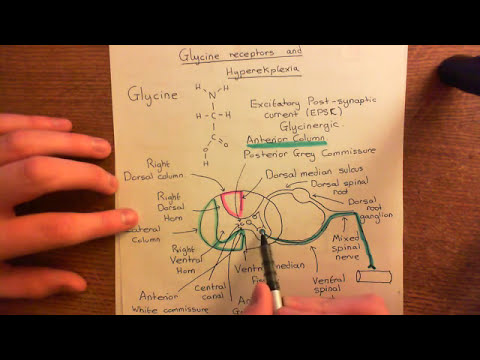 Glycine receptors and
Hyperekplexia
Glycine
H
N
H
H
C
H
C
O
O
H
Excitatory Post-synaptic
current (EPSC)
Glycinergic
Anterior Column
Posterior Grey Commissure
Right
Dorsal column
Dorsal median sulcus
Dorsal spinal
root
Dorsal
root
ganglion
Right
Dorsal
Horn
Lateral
column
Right
Ventral
Horn
Mixed
spinal
nerve
Central
canal
Ventral median
Ventral
spinal
Anterior
White commissure